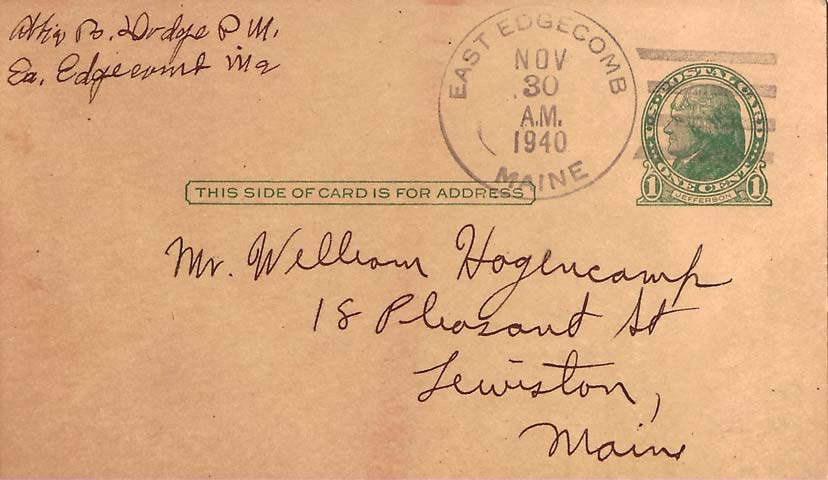 Abbie B. Dodge P M.
Ea. Edgecomb Me
EAST EDGECOMB
NOV
30
A.M.
1940
MAINE
U.S. POSTAL CARD
ONE CENT
1 JEFFERSON 1
THIS SIDE OF CARD IS FOR ADDRESS
Mr. William Hogencamp
18 Pleasant St
Lewiston,
Maine